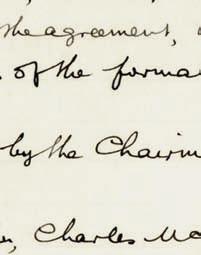 the agreement,
of the forma
by the Chairm
Charles Mc